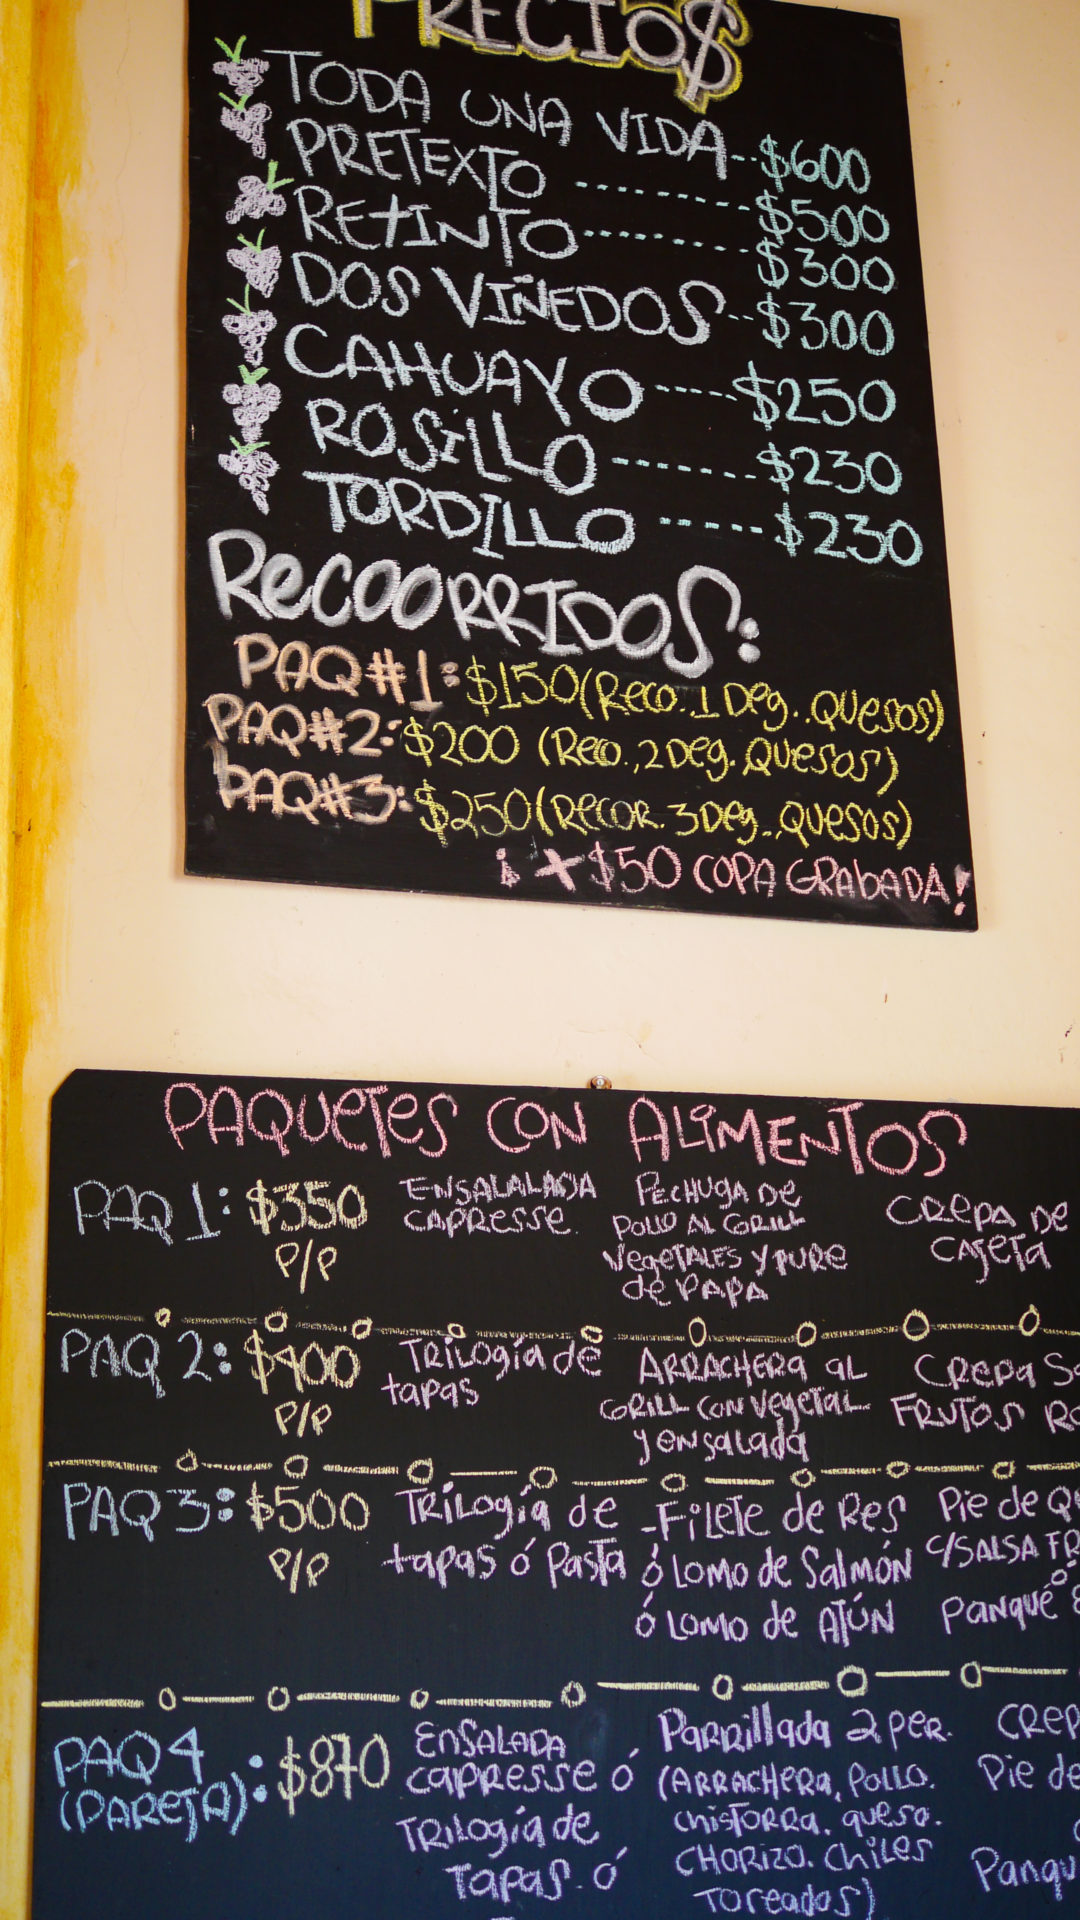 PRECIO$
TODA UNA VIDA--$600
PRETEXTO --------- $500
RETINTO--------- $300
DOS VIÑEDOS--$300
CAHUAYO-----$250
ROSILLO -------$230
TORDILLO ------$230
RECOORRIDOS:
PAQ#1:$150(Reco. 1 Deg.. QUesos)
PAQ#2:$200 (Reco.,2 Deg. QUesos)
PAQ#3:$250(RECOR. 3 Deg.., QUesos)
¡+$50 COPA GRAbADA!
PAQUETES CON ALIMENTOS
PAQ 1: $350 P/P
CAPRESSE
PECHUGA DE
POLLO AL GRILL
VegeTALES Y PURE
de PAPA
CREPA DE
CAJETA
PAQ 2: $400 P/P
TRILOGÍA de
tapas
ARRACHERA aL
GRILL CON Vegetal
y ENSALADA
CREPA
FRUTOS
PAQ 3: $500 P/P
TRILOGÍA de
tapas ó PASTA
-FILETE de Res
ó LOMO de SALMÓN
ó LOMO de ATÚN
Pie de
C/SALSA
PANQUÉ
PAQ 4
(PAREJA): $870
ENSALADA
CAPRESSE ó
TRILOGÍA de
TAPAS. ó
PARRILLADA 2 PER.
(ARRACHERA, POLLO.
CHISTORRA. queso.
CHORIZO. CHILES
TOREADOS)
Pie de